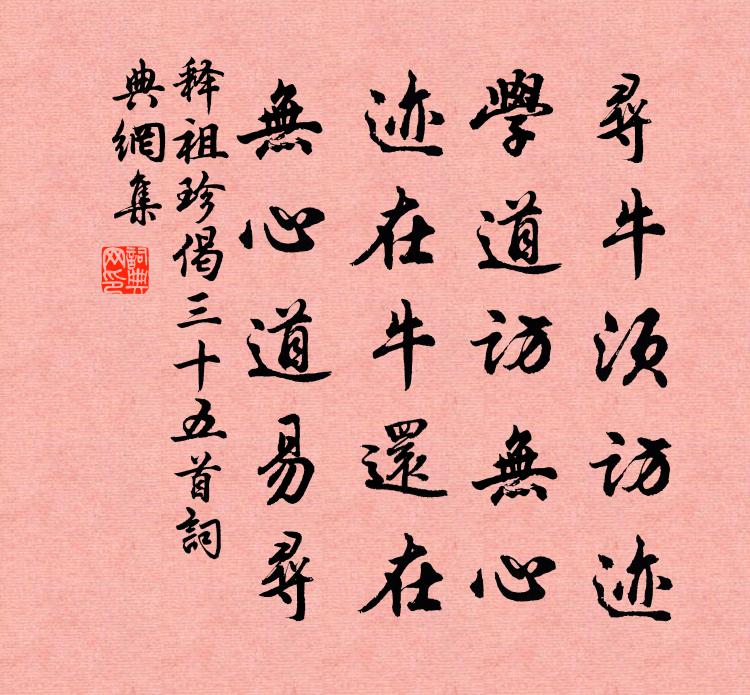 尋牛須訪迹
學道訪無心
迹在牛還在
無心道易尋
释祖珍偈三十五首詞
典網集
詞典
网印